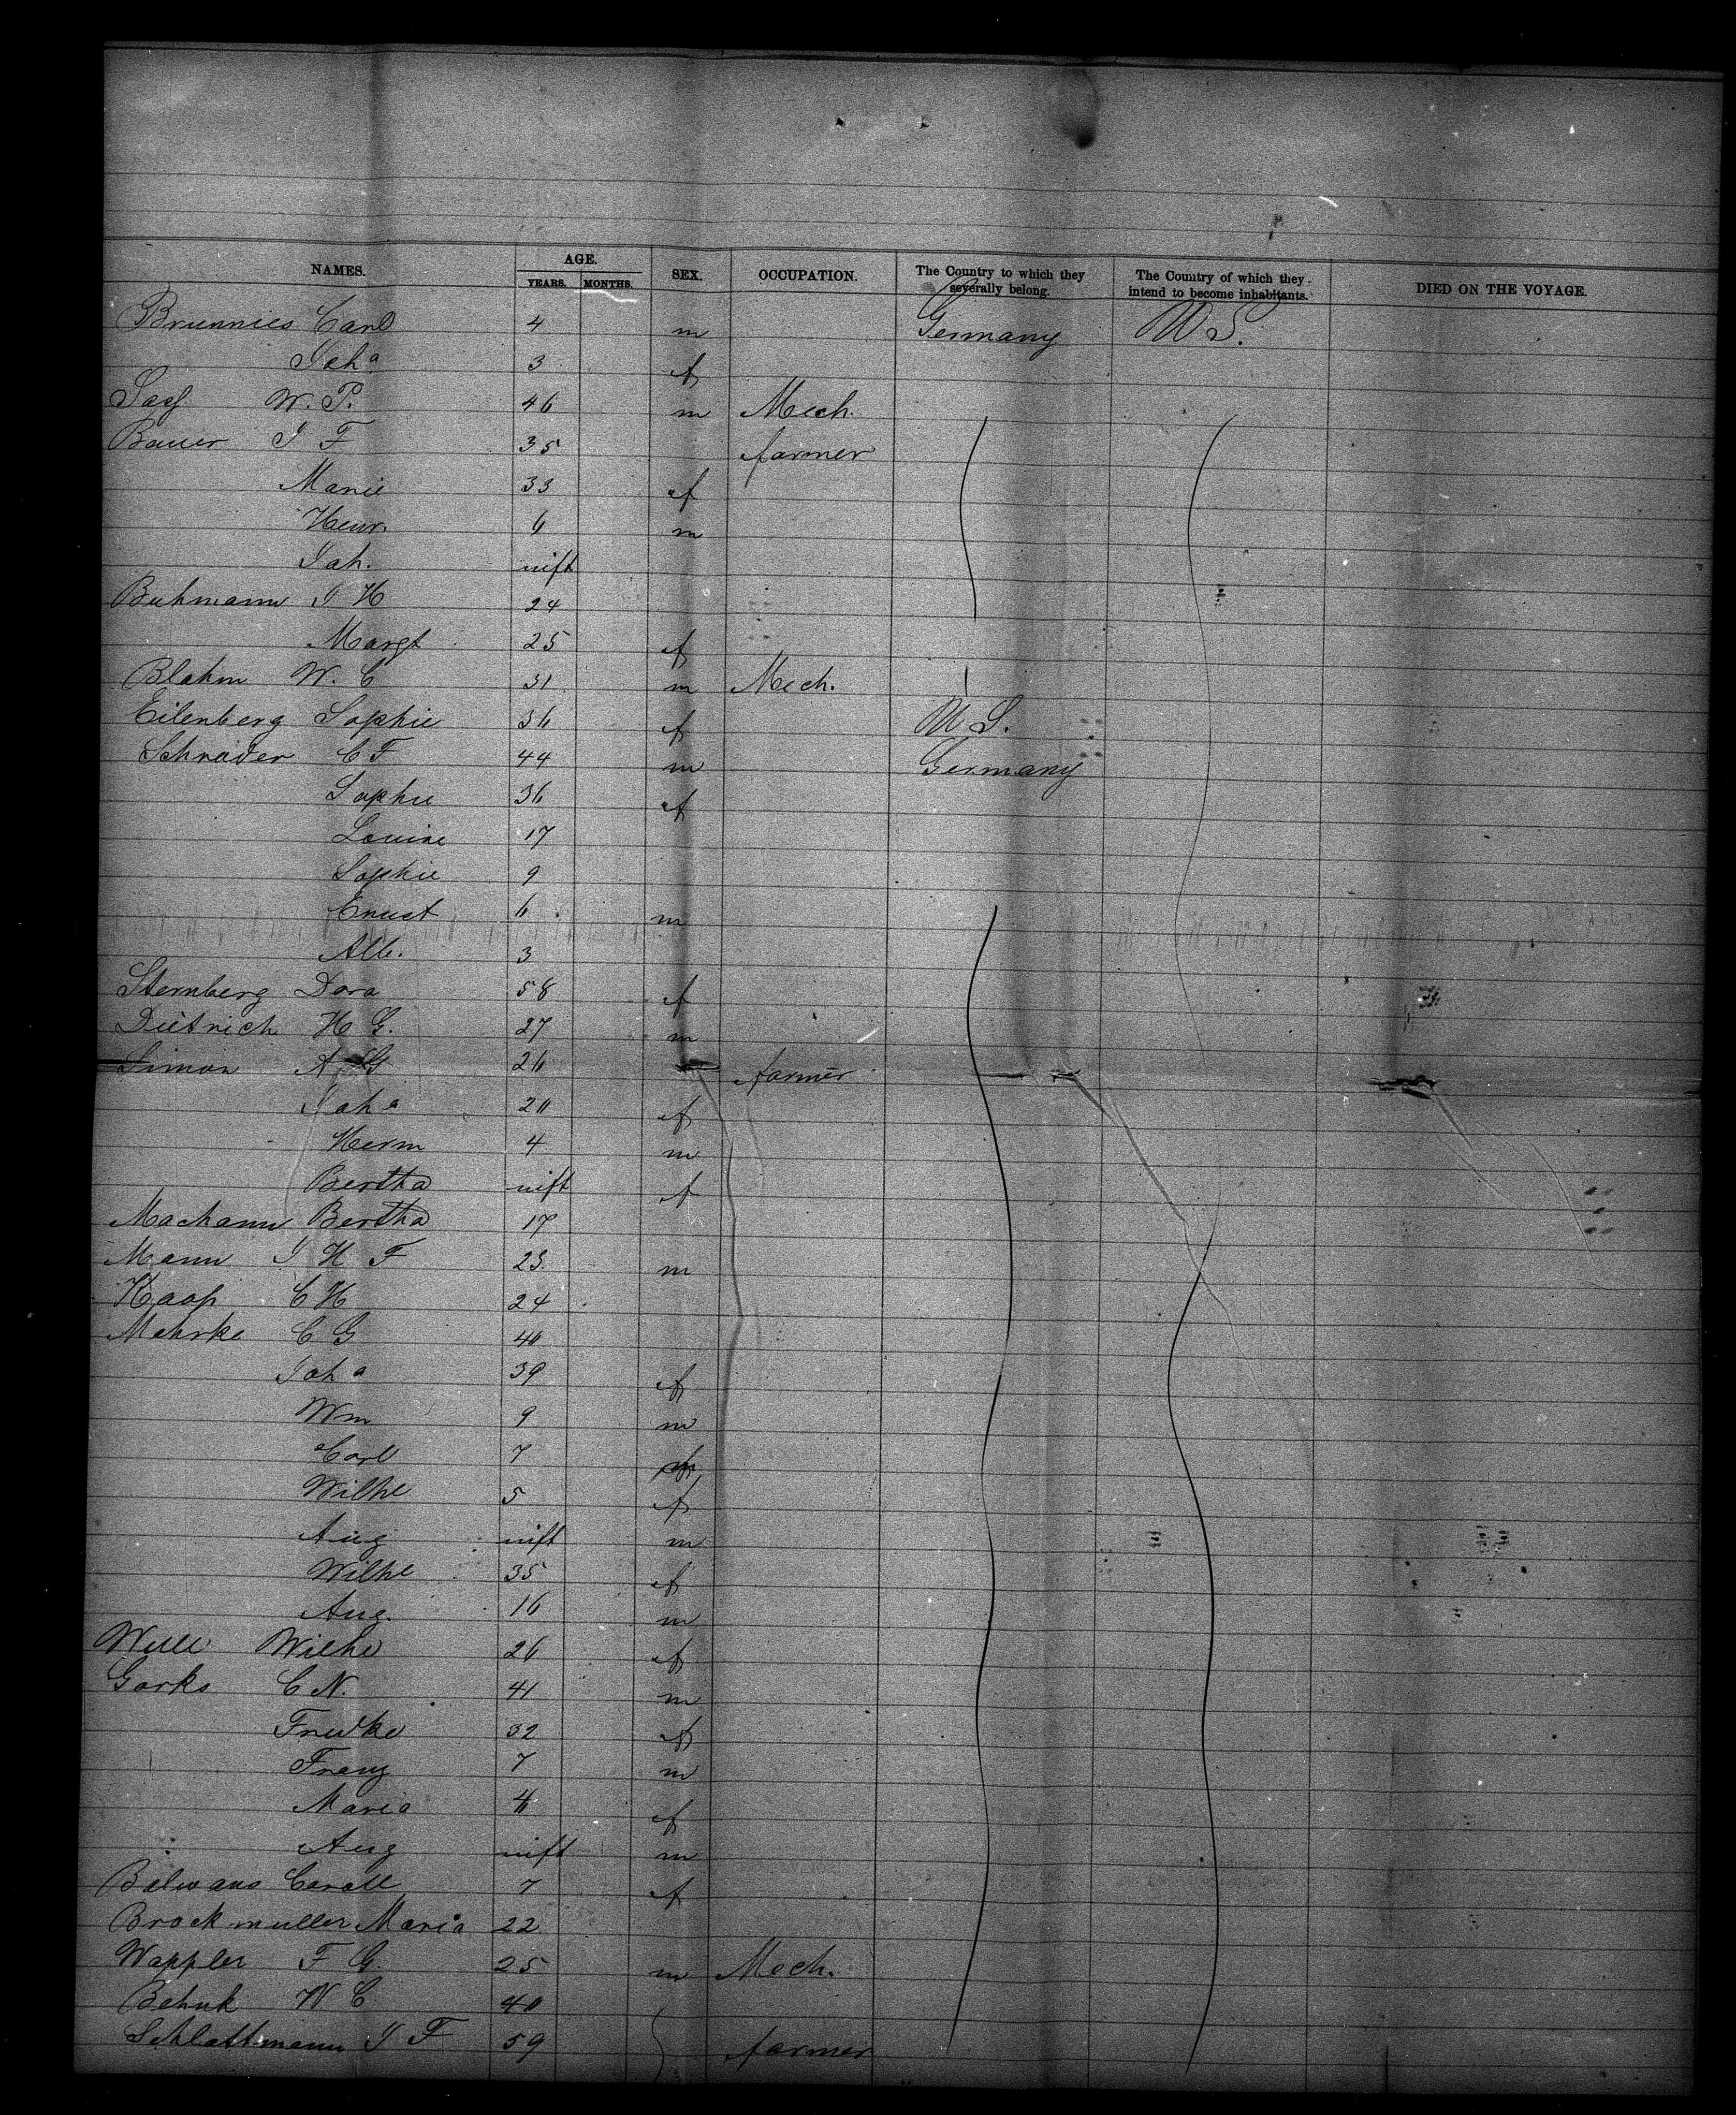 NAMES. AGE. YEARS. MONTHS. SEX. OCCUPATION. The Country to which they severally belong. The Country of which they intend to become inhabitants. DIED ON THE VOYAGE.
Brunnies Carl 4 m Germany U S.
Joha 3 f
W. P. 46 m Mech.
Bauer J F 35 farmer
Marie 33 f
Henr. 6 m
Joh. inft
Buhmann J H 24
Margt 25 f
Blahm W. C 31 m Mech.
Eilenberg Sophie 36 f U S.
Schrader C F 44 m Germany
Sophie 36 f
Louise 17
Sophie 9
Ernst 6 m
Alb. 3
Sternberg Dora 58 f
Dietrich H G. 27 m
Simon A G 26 farmer
Joha 20 f
Herm 4 m
Bertha inft f
Machann Bertha 17
Mann J H F 23 m
Haop C H 24
Mehrke C G 40
Joha 39 f
Wm 9 m
Carl 7
Wilhe 5 f
Aug inft m
Wilhe 35 f
Aug. 16 m
Wilhe 26 f
Garks C N. 41 m
Fredke 32 f
Franz 7 m
Maria 4 f
Aug inft m
7 f
Brockmuller Maria 22
Wappler F G. 25 m Mech.
Behnk W C 40
Schlattmann J F 59 farmer